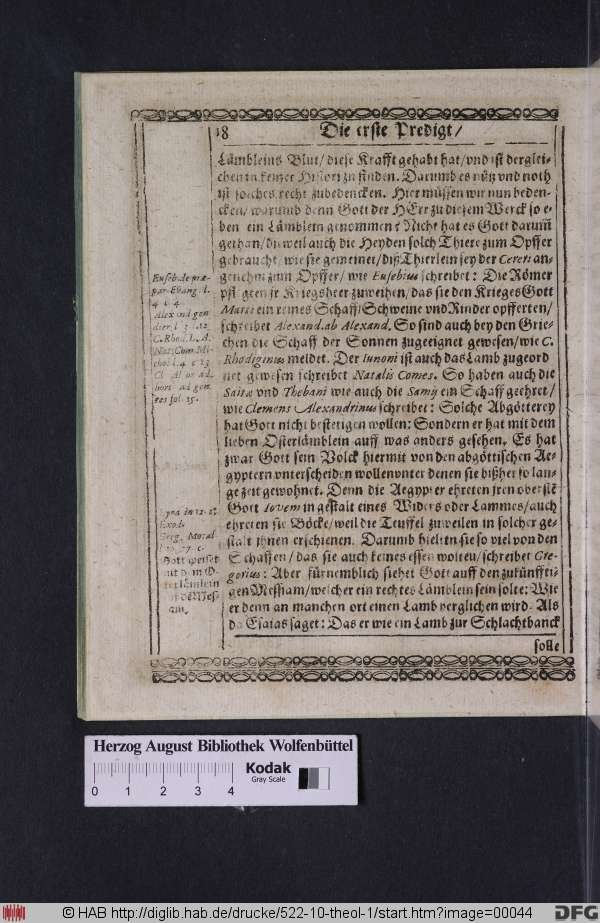 18
Die erste Predigt/
Lämbleins Blut/ diese Krafft gehabt hat/ vnd ist derglei-
chen in keiner Histori zu finden. Darumb es nütz vnd noth
ist solches recht zubedencken. Hier müssen wir nun beden-
cken/ warumb denn Gott der HErr zu diesem Werck so e-
ben ein Lämblein genommen? Nicht hat es Gott darum̃
gethan/ dieweil auch die Heyden solch Thiere zum Opffer
gebraucht/ wie sie gemeinet/ diß Thierlein sey der Cereri an-
genehm zum Opffer/ wie Eusebius schreibet: Die Römer
pflegten jr Kriegsheer zuweihen/ das sie den Krieges Gott
Marti ein reines Schaff/ Schweine vnd Rinder opfferten/
schreibet Alexand. ab Alexand. So sind auch bey den Grie-
chen die Schaff der Sonnen zugeeignet gewesen/ wie C.
Rhodiginus meldet. Der Iunoni ist auch das Lamb zugeord
net gewesen schreibet Natalis Comes. So haben auch die
Saitæ vnd Thebani wie auch die Samij ein Schaff geehret/
wie Clemens Alexandrinus schreibet: Solche Abgötterey
hat Gott nicht bestetigen wollen: Sondern er hat mit dem
lieben Osterlämblein auff was anders gesehen. Es hat
zwar Gott sein Volck hiermit von den abgöttischen Ae-
gyptern vnterscheiden wollen vnter denen sie bißher so lan-
ge zeit gewohnet. Denn die Aegypter ehreten jren obersten
Gott Iovem in gestalt eines Widers oder Lammes/ auch
ehreten sie Böcke/ weil die Teuffel zuweilen in solcher ge-
stalt jhnen erschienen. Darumb hielten sie so viel von den
Schaffen/ das sie auch keines essen wolten/ schreibet Gre-
gorius: Aber fürnemblich siehet Gott auff den zukünffti-
gen Messiam/ welcher ein rechtes Lämblein sein solte: Wie
er denn an manchen ort einen Lamb verglichen wird. Als
da Esaias saget: Das er wie ein Lamb zur Schlachtbanck
solle
Euseb. de præ-
par. Evang. l.
4 c. 4
C. Rhod. l.
Nat. Com. My-
thol. l. 4 c. 13
Cl. Al. in ad-
hort. ad gen-
tes fol. 15.
Lyra in 12. c.
Exod.
Greg. Moral.
Gott weiset
mit dem O-
sterlämlein
Mes-
siam.
Herzog August Bibliothek Wolfenbüttel
Kodak
Gray Scale
0 1 2 3 4
© HAB http://diglib.hab.de/drucke/522-10-theol-1/start.htm?image=00044
DFG